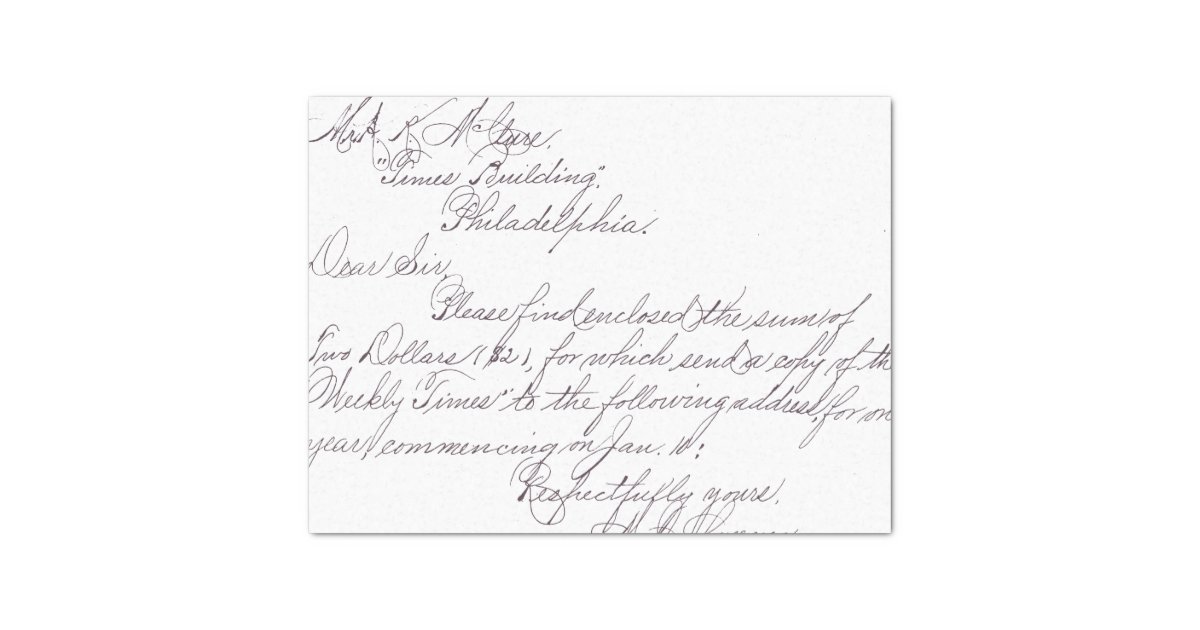 Mr. A. K. McClure,
"Times Building",
Philadelphia.
Dear Sir,
Please find enclosed the sum of
Two Dollars ($2), for which send a copy of th
Weekly Times" to the following address, for on
year, commencing on Jan. 10:
Respectfully yours,